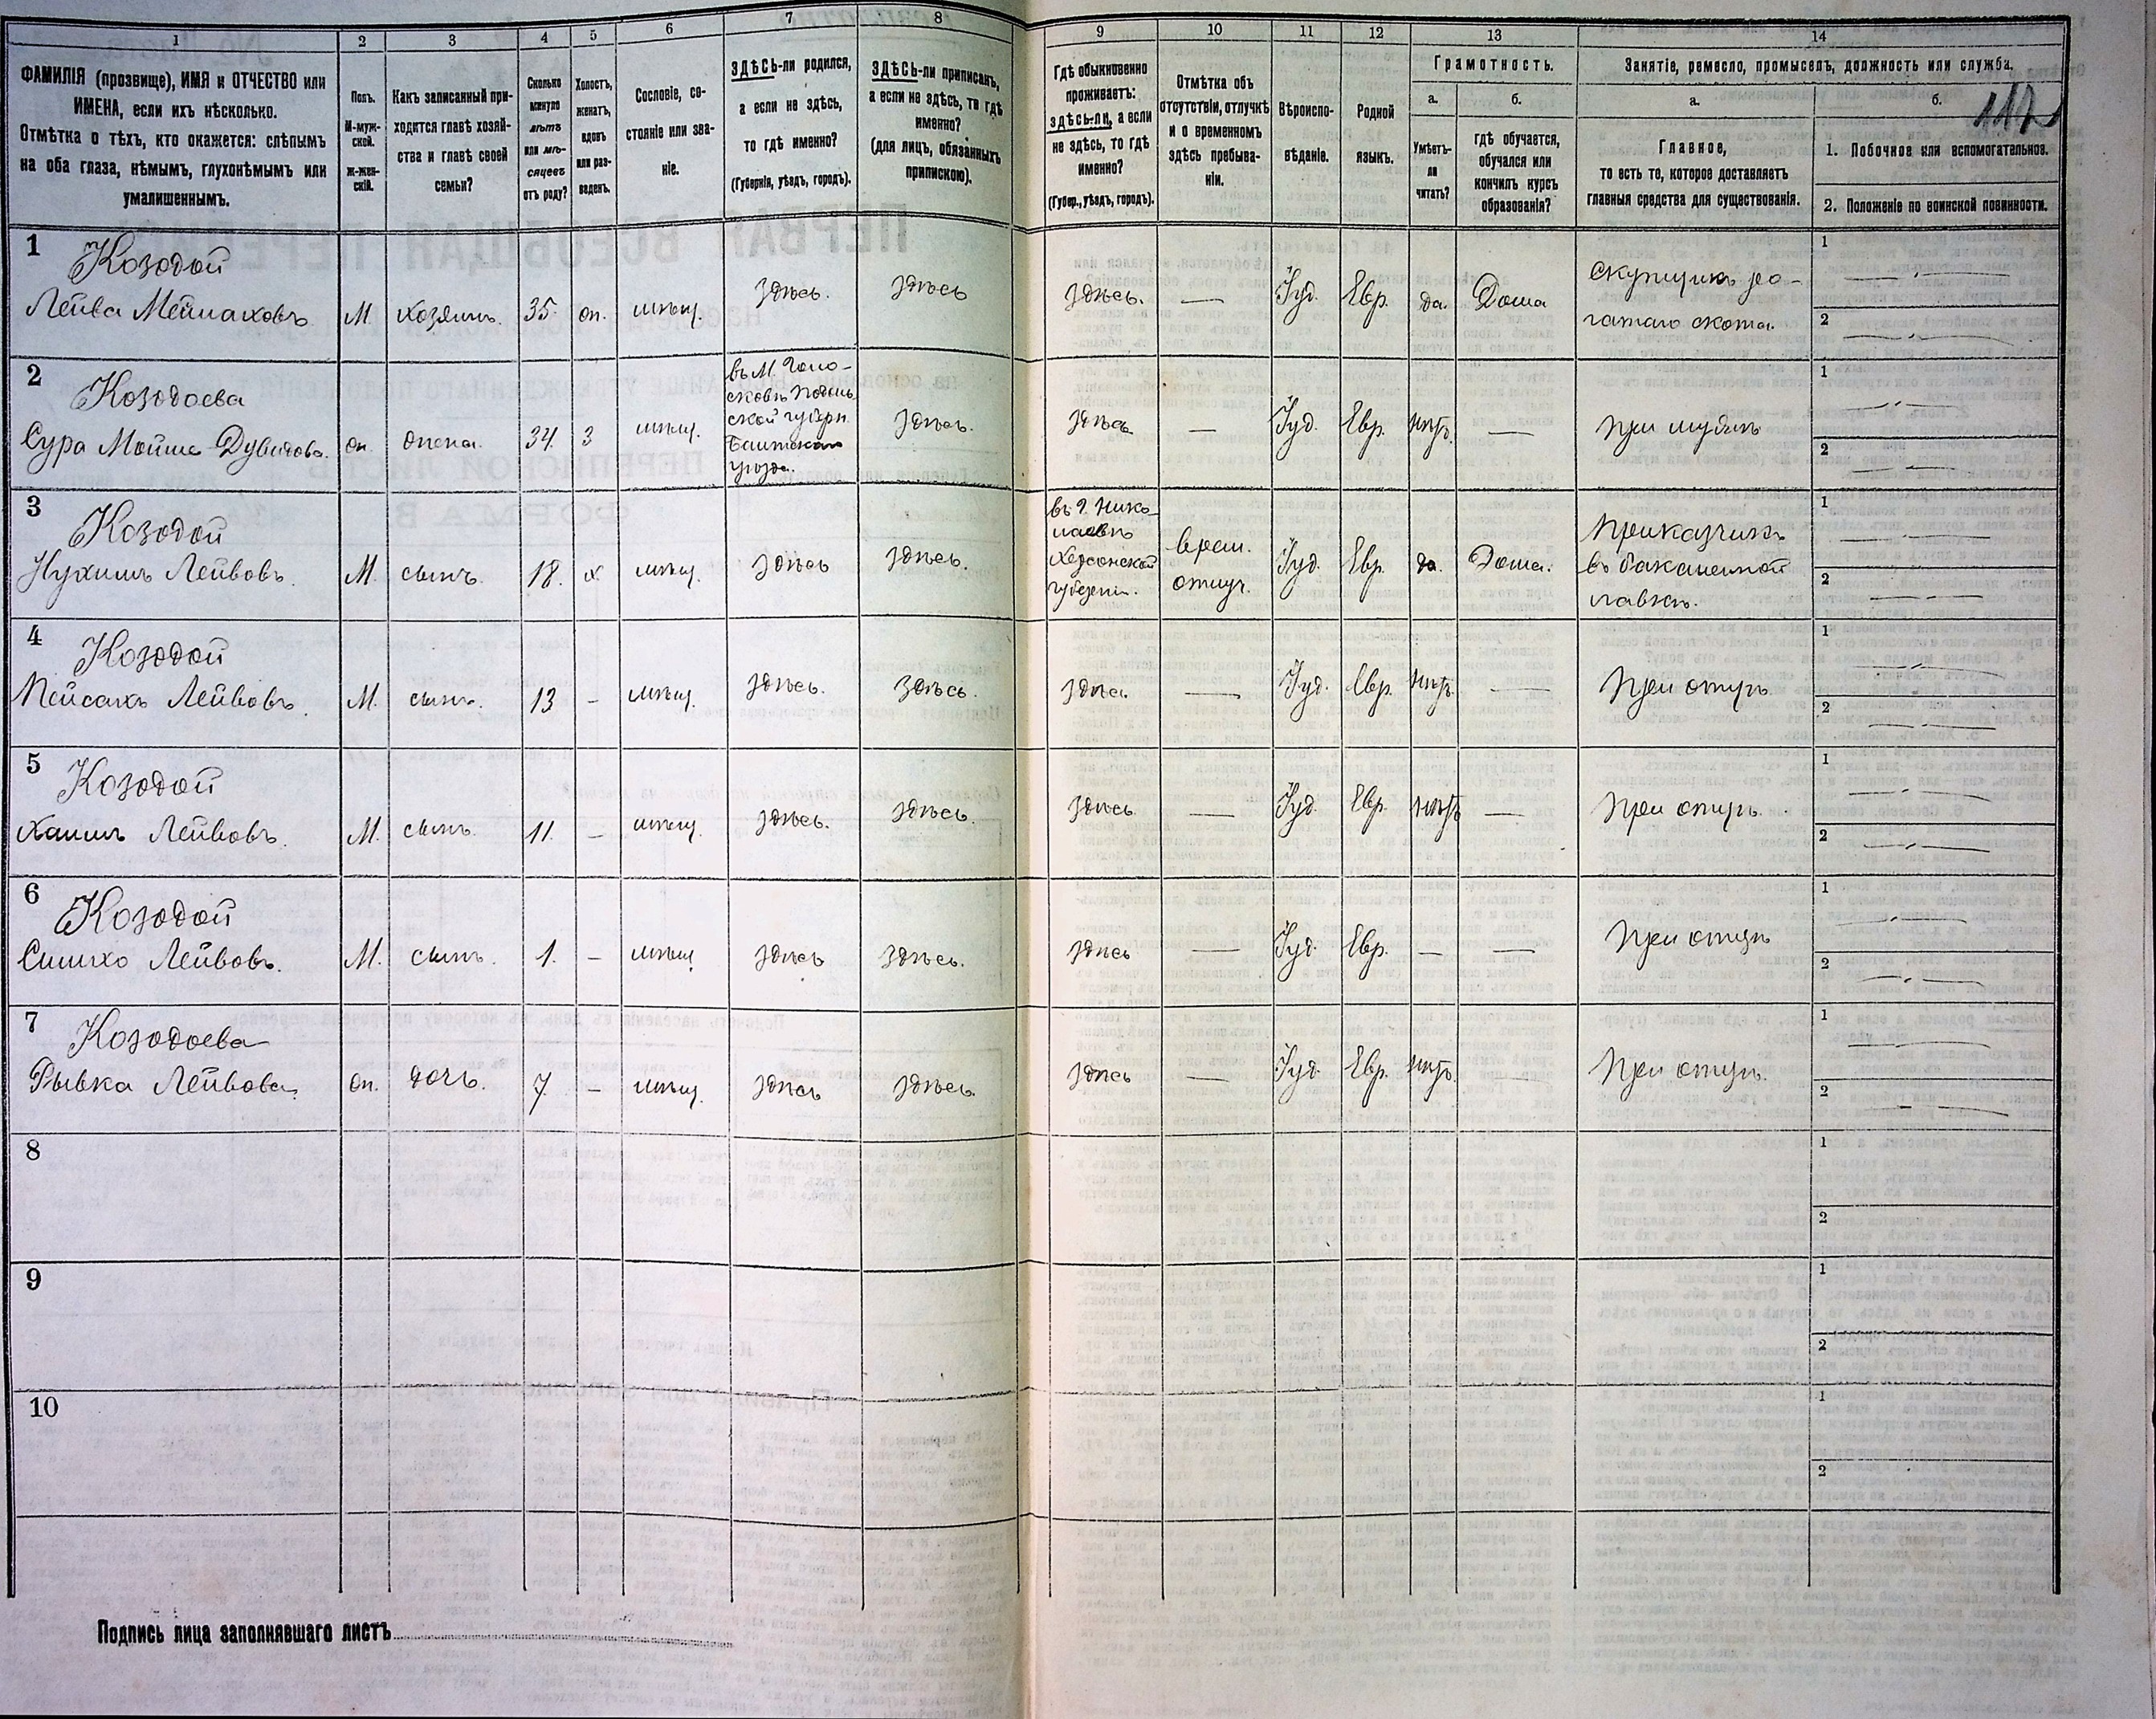 1 2 3 4 5 6 7 8 9 10 11 12 13 14
ФАМИЛІЯ (прозвище), ИМЯ и ОТЧЕСТВО или
ИМЕНА, если ихъ нѣсколько.
Отмѣтка о тѣхъ, кто окажется: слѣпымъ
на оба глаза, нѣмымъ, глухонѣмымъ или
умалишеннымъ.
Полъ.
М-муж-
ской.
Ж-жен-
скій.
Какъ записанный при-
ходится главѣ хозяй-
ства и главѣ своей
семьи?
Сколько
минуло
лѣтъ
или мѣ-
сяцевъ
отъ роду?
Холостъ,
женатъ,
вдовъ
или раз-
веденъ.
Сословіе, со-
стояніе или зва-
ніе.
ЗДѢСЬ-ли родился,
а если не здѣсь,
то гдѣ именно?
(Губернія, уѣздъ, городъ).
ЗДѢСЬ-ли приписанъ,
а если не здѣсь, то гдѣ
именно?
(для лицъ, обязанныхъ
припискою).
Гдѣ обыкновенно
проживаетъ:
здѣсь-ли, а если
не здѣсь, то гдѣ
именно?
(Губер., уѣздъ, городъ).
Отмѣтка объ
отсутствіи, отлучкѣ
и о временномъ
здѣсь пребыва-
ніи.
Вѣроиспо-
вѣданіе.
Родной
языкъ.
Грамотность.
а.
Умѣетъ-
ли
читать?
б.
Гдѣ обучается,
обучался или
кончилъ курсъ
образованія?
Занятіе, ремесло, промыселъ, должность или служба.
а.
Главное,
то есть то, которое доставляетъ
главныя средства для существованія.
б.
1. Побочное или вспомогательное.
2. Положеніе по воинской повинности.
1
Козодой
Лейва Мейлаховъ М. хозяинъ. 35. мѣщ. здѣсь. здѣсь здѣсь. — Іуд. Евр. да. Дома
скупщикъ ро-
гатаго скота.
1
2
2
Козодоева
Сура Мойше-Дувидова. жена. 34 з мѣщ.
въ М. Голо-
сковѣ Подоль
ской губерн.
Балтскаго
уѣзда.
здѣсь. здѣсь — Іуд. Евр. нѣтъ. — при мужѣ
1
2
3
Козодой
Нухимъ Лейвовъ. М. сынъ. 18. х мѣщ. здѣсь здѣсь.
въ г. Нико-
лаевѣ
Херсонской
губерніи.
врем.
отлуч.
Іуд. Евр. да. Дома.
Приказчикъ
въ бакалейной
лавкѣ.
1
2
4
Козодой
Пейсахъ Лейвовъ. М. сынъ. 13 – мѣщ. здѣсь. здѣсь. здѣсь — Іуд. Евр. нѣтъ. — при отцѣ.
1
2
5
Козодой
Хаимъ Лейвовъ. М. сынъ. 11. – мѣщ. здѣсь. здѣсь. здѣсь — Іуд. Евр. нѣтъ — при отцѣ.
1
2
6
Козодой
Симхо Лейвовъ. М. сынъ. 1. – мѣщ. здѣсь здѣсь. здѣсь — Іуд. Евр. — — при отцѣ
1
2
7
Козодоева
Рывка Лейвова. дочь. 7. – мѣщ. здѣсь здѣсь. здѣсь — Іуд. Евр. нѣтъ. — при отцѣ.
1
2
8
1
2
9
1
2
10
1
2
Подпись лица заполнявшаго листъ